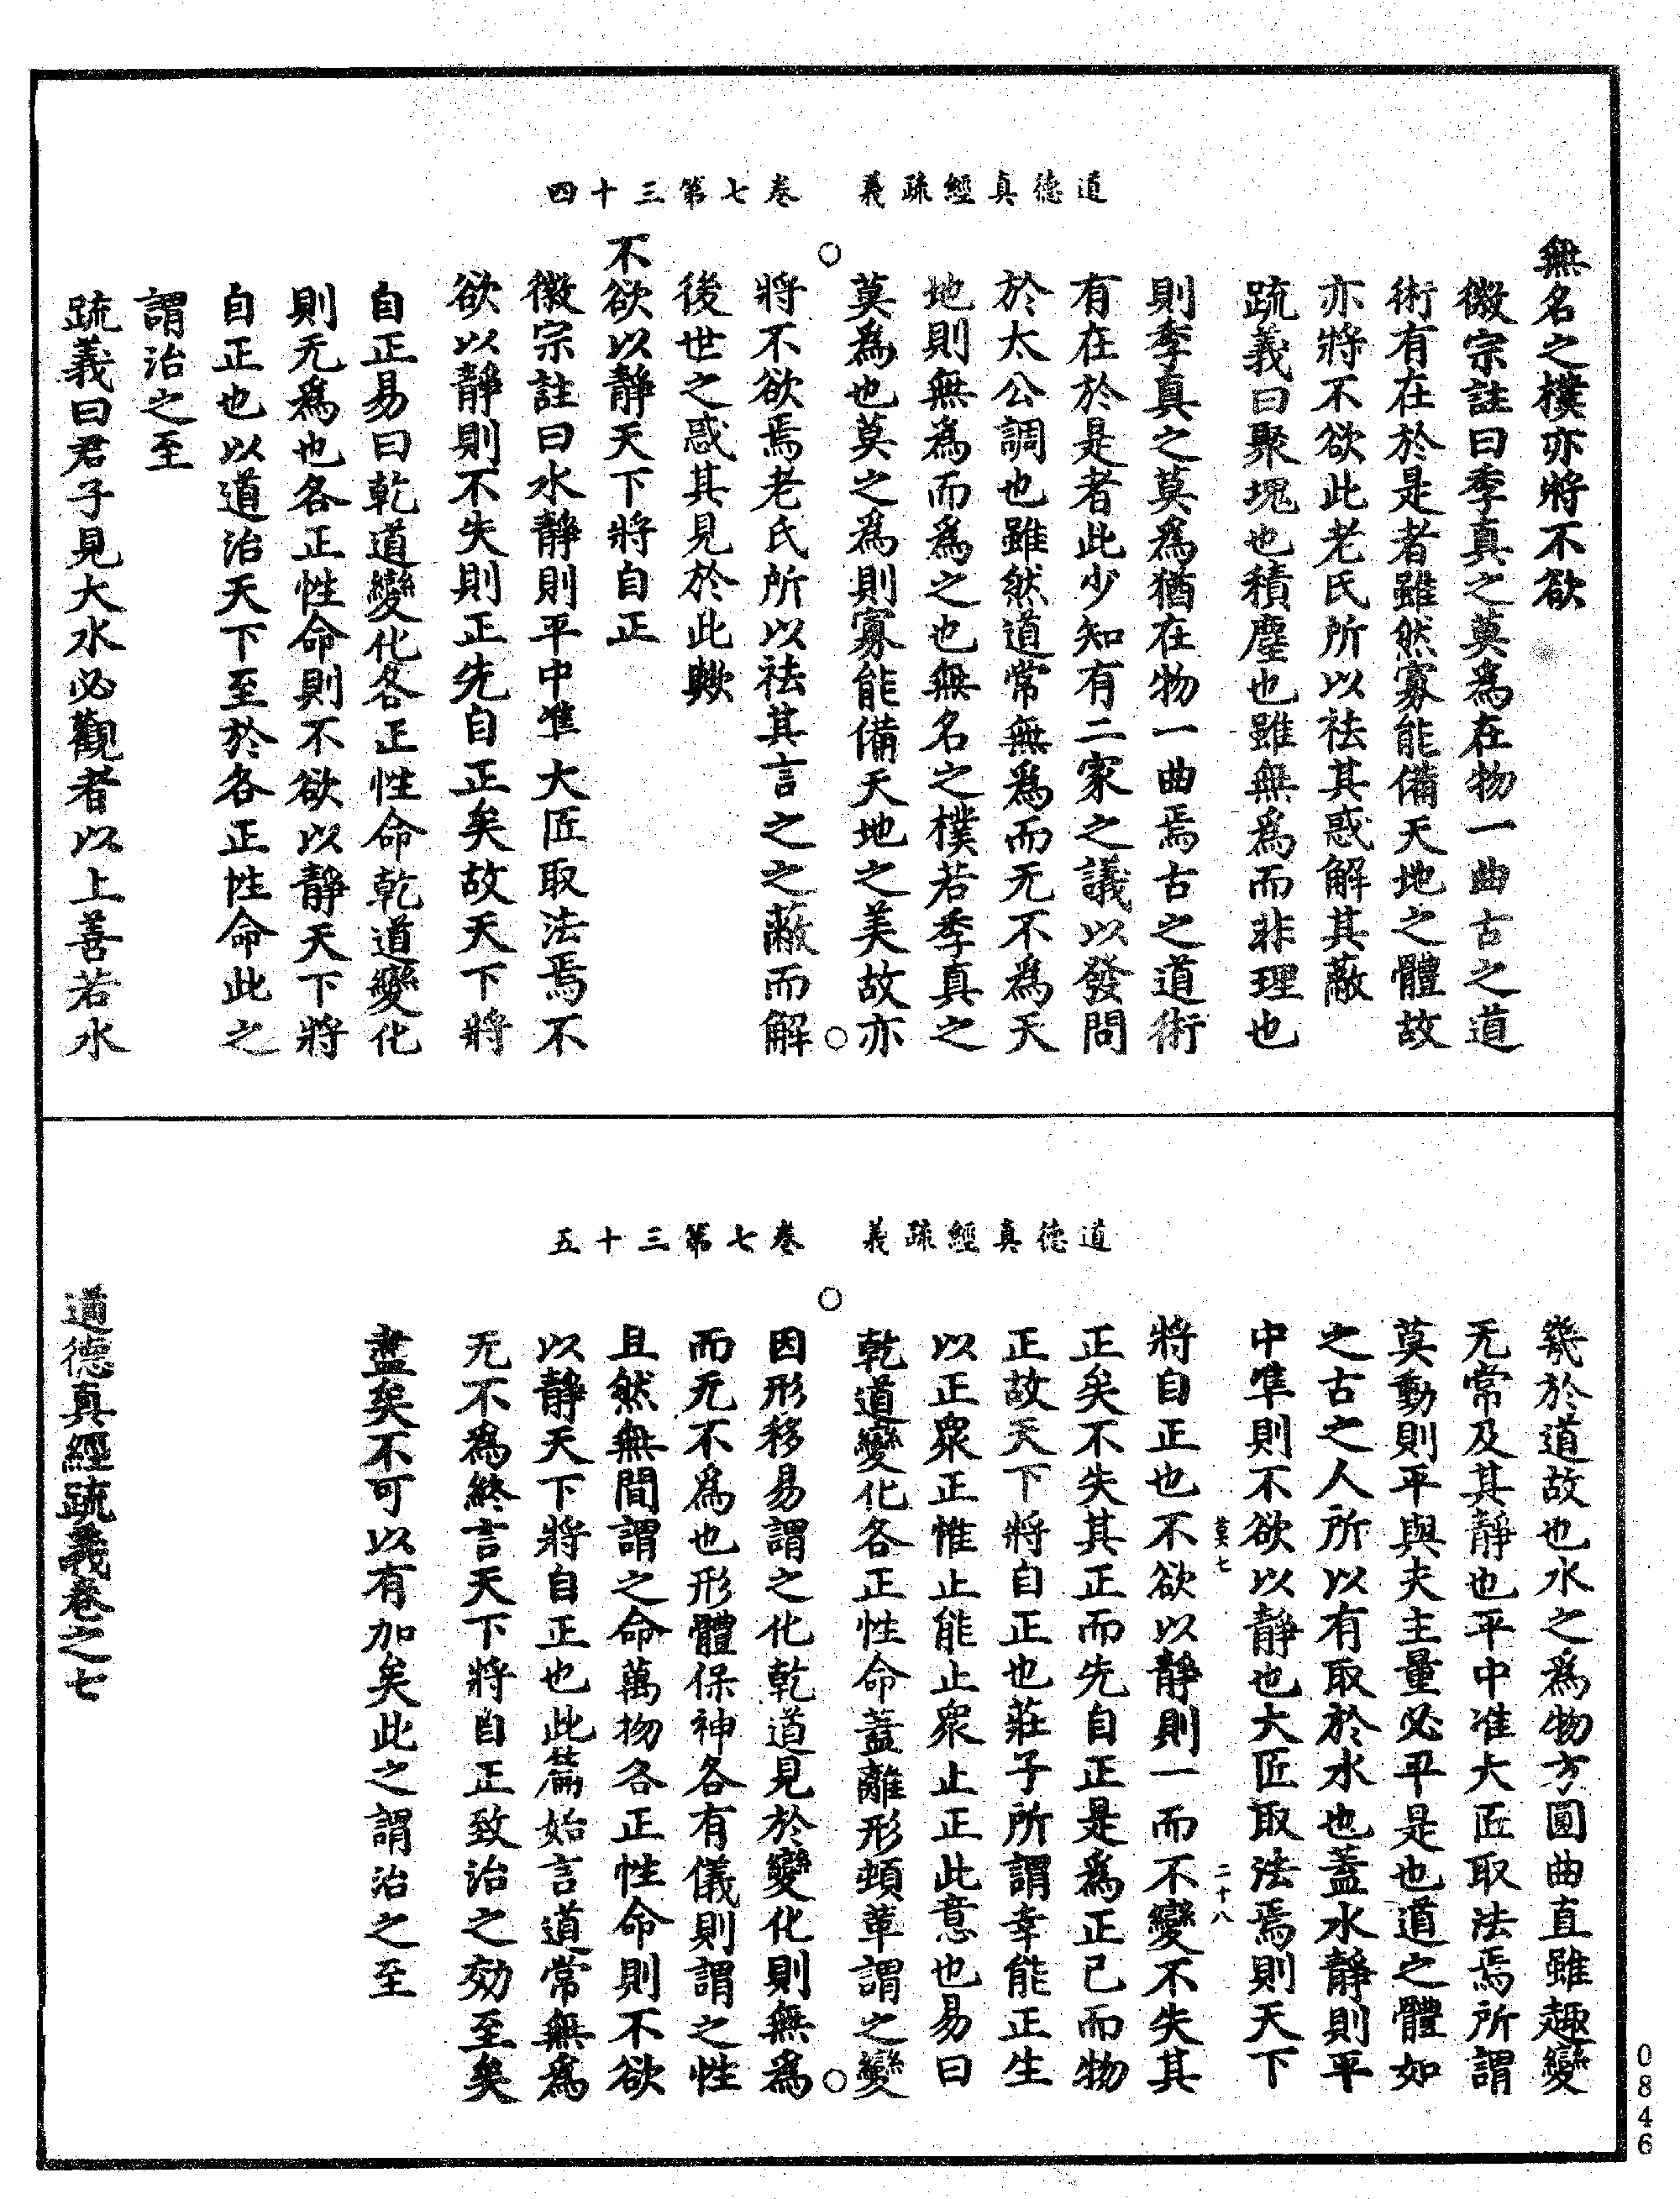 道德真經疏義　卷七第三十四
無名之樸亦將不欲
徽宗註曰季真之莫爲在物一曲古之道
術有在於是者雖然寡能備天地之體故
亦將不欲此老氏所以祛其惑解其蔽
疏義曰聚塊也積塵也雖無爲而非理也
則季真之莫爲猶在物一曲焉古之道術
有在於是者此少知有二家之議以發問
於太公調也雖然道常無爲而无不爲天
地則無爲而爲之也無名之樸若季真之
莫爲也莫之爲則寡能備天地之美故亦
將不欲焉老氏所以祛其言之之蔽而解
後世之惑其見於此歟
不欲以靜天下將自正
徽宗註曰水靜則平中准大匠取法焉不
欲以靜則不失則正先自正矣故天下將
自正易曰乾道變化各正性命乾道變化
則无爲也各正性命則不欲以靜天下將
自正也以道治天下至於各正性命此之
謂治之至
疏義曰君子見大水必觀者以上善若水
道德真經疏義　卷七第三十五
幾於道故也水之爲物方圓曲直雖趣變
无常及其靜也平中准大匠取法焉所謂
莫動則平與夫主量必平是也道之體如
之古之人所以有取於水也蓋水靜則平
中準則不欲以靜也大匠取法焉則天下
莫七　二十八
將自正也不欲以靜則一而不變不失其
正矣不失其正而先自正是爲正已而物
正故天下將自正也莊子所謂幸能正生
以正衆正惟止能止衆止正此意也易曰
乾道變化各正性命蓋離形頓革謂之變
因形移易謂之化乾道見於變化則無爲
而无不爲也形體保神各有儀則謂之性
且然無間謂之命萬物各正性命則不欲
以靜天下將自正也此篇始言道常無爲
无不爲終言天下將自正致治之効至矣
盡矣不可以有加矣此之謂治之至
道德真經疏義卷之七
0846